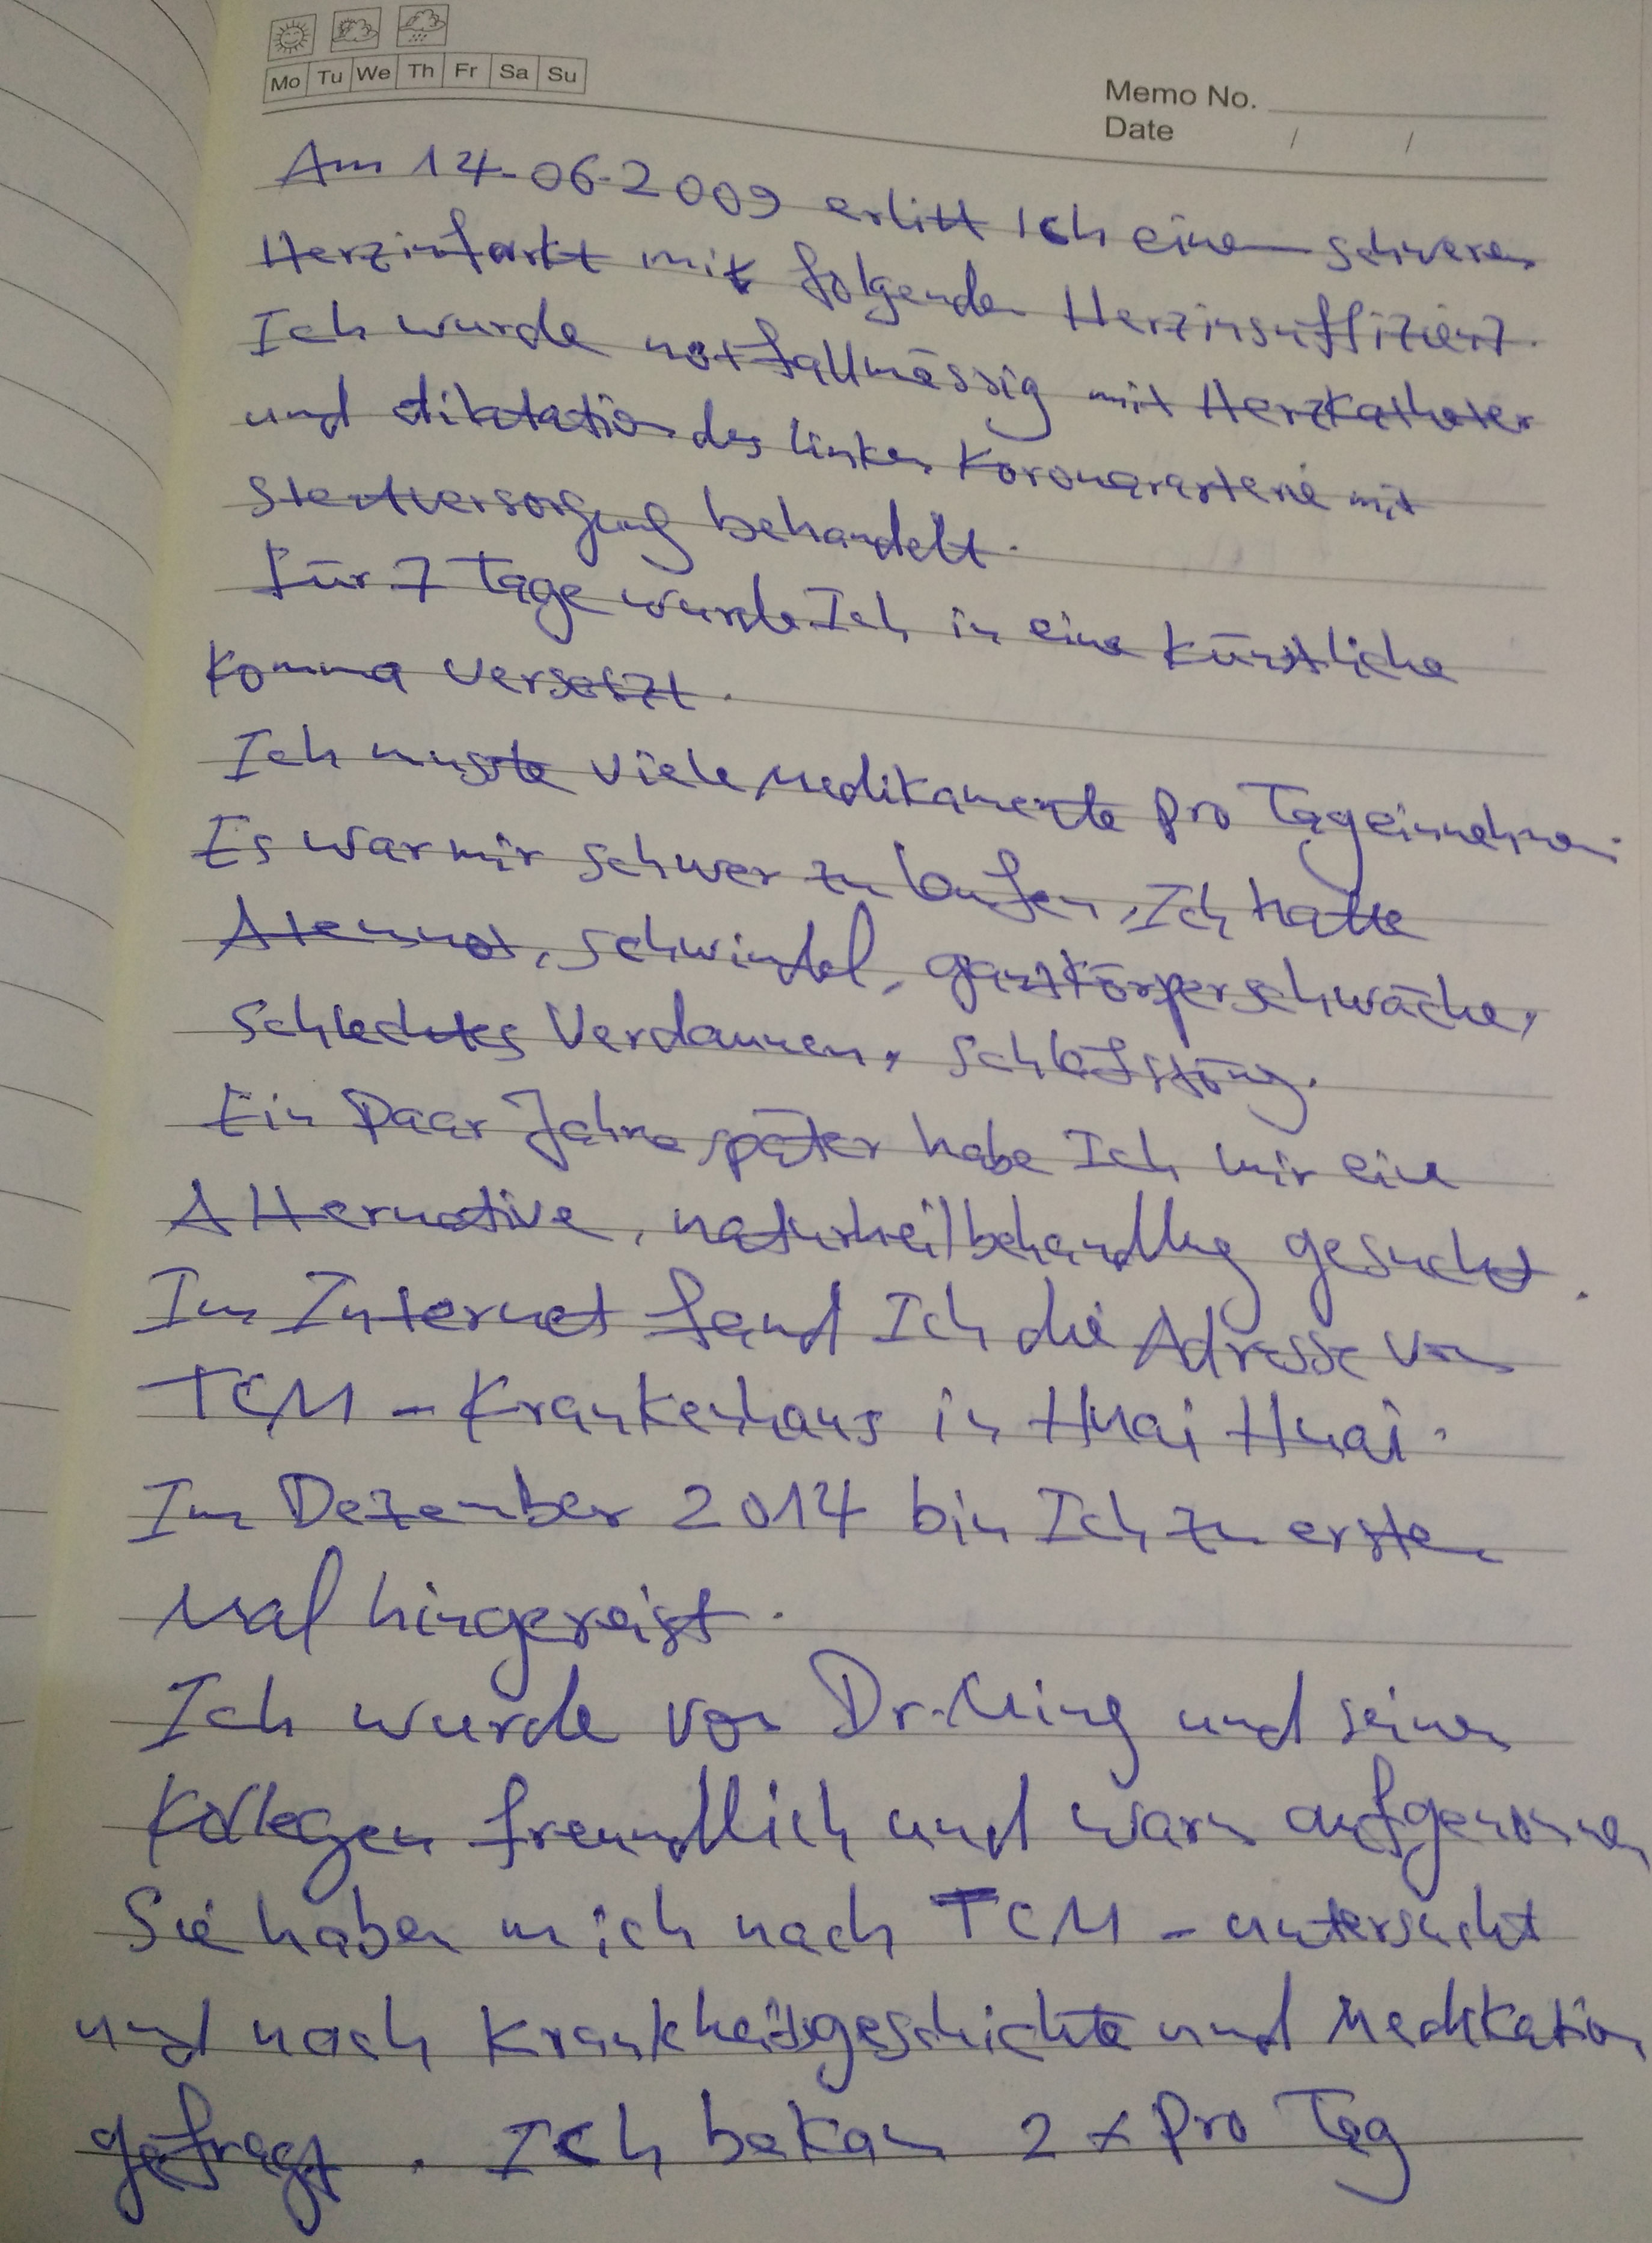 Mo Tu We Th Fr Sa Su
Memo No.
Date / /
Am 14-06-2009 erlitt Ich einen schweren
Herzinfarkt mit folgenden Herzinsuffizienz.
Ich wurde notfallmässig mit Herzkatheter
und dilatation des linken Koronararterie mit
Stentversorgung behandelt.
Für 7 Tage wurde Ich in eine künstliche
Komma versetzt.
Ich musste viele Medikamente pro Tag einnehmen.
Es war mir schwer zu laufen, Ich hatte
Atemnot, schwindel, ganzkörperschwäche,
schlechtes Verdauuen, schlafstöung.
Ein Paar Jahre später habe Ich mir eine
Alternative, naturheilbehandlung gesucht.
Im Internet fand Ich die Adresse von
TCM - Krankenhaus in Huai Huai.
Im Dezember 2014 bin Ich zu ersten
Mal hingereist.
Ich wurde von Dr. Ming und seinen
Kollegen freundlich und warm aufgenommen
Sie haben mich nach TCM - untersucht
und nach Krankheitsgeschichte und Medikation
gefragt. Ich bekam 2 x pro Tag